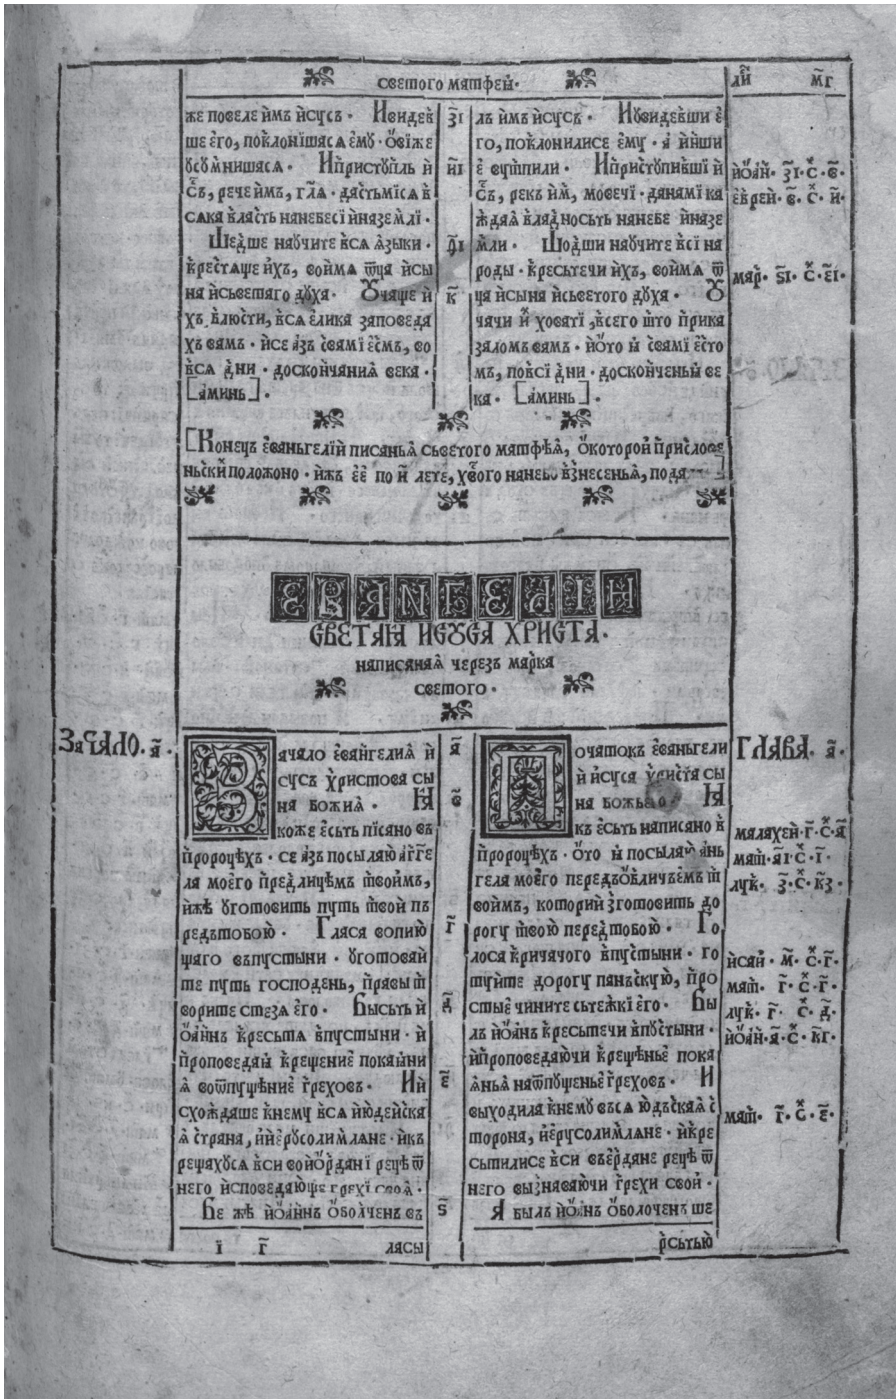 светого матфей·
ли мг
же повеле имъ исусъ· Ивидев
ше его, поклонишася ему· овиже
усумнишася· Иприступль и
с҃ъ, рече имъ, гл҃я· дастьмися в
сака власть нанебеси иназемли·
Шедше научите вся языки·
крестяще ихъ, воимя ѿца исы
на исьветаго духа· Учаще и
хъ влюсти, вся елика заповеда
хъ вамъ· исе азъ свами есмъ, во
вся дни· доскончания века·
[аминь]·
з҃і
и҃і
д҃і
к҃
лъ имъ исусъ· Иувидевши е
го, поклонилисе ему· а инши
е вутпили· Иприступивши и
с҃ъ, рекъ им, мовечи· данами ка
ждая владность нанебе иназе
мли· Шодши научите вси на
роды· кресьтечи ихъ, воимя ѿ
ца исына исьветого духа· У
чачи и ховати, всего што прика
заломъ вамъ· иото я свами есто
мъ, повси дни· доскончеьня ве
ка· [аминь]·
иоан· з҃і· с· в҃·
еврей· в҃· с· и҃·
мар· ѕ҃і· с· е҃і·
[Конецъ еваньгелий писанья сьветого матфея, окоторой прислове
ньски положоно· ижъ ее по и лете, хвого нанебо взнесенья, подя
ЕВАНГЕЛІИ
СВЕТАЯ ИСУСА ХРИСТА·
написаная через марка
светого·
Зачало· а҃·
Зачало евангелия и
сусъ христова сы
на божия· Я
коже есьть писано въ
пророцехъ· се азъ посылаю аггє
ла моего предлицемъ твоимъ,
иже уготовить путь твой пъ
редътобою· Гласа вопию
щаго въпустыни· уготовай
те путь господень, правы т
ворите стеза его· Бысьть и
оаннъ кресьтя впустыни· и
проповедая крещение покаяни
я воѿпущение греховъ· Ии
схождаше кнему вся июдейска
я страна, иерусолимляне· икъ
рещахуся вси войордани реце ѿ
него исповедающе грехи своя·
Бе же иоаннъ оболченъ въ
і҃ г҃ ласы
а҃
в҃
г҃
д҃
е҃
ѕ҃
Початокъ еваньгели
и исуса христа сы
на божьего· Я
къ есьть написано в
пророцехъ· ото я посылаю ань
гела моего передъобличьемъ т
воимъ, который зготовить до
рогу твою передтобою· Го
лоса кричачого впустыни· го
туйте дорогу панъскую, про
стые чините сьтежки его· Бы
лъ иоанъ кресьтечи впустыни·
ипроповедаючи крещенье пока
янья наѿпущенье греховъ· И
выходила кнему въся юдъская с
торона, иерусолимляне· икре
сьтилисе вси въердане реце ѿ
него вызнаваючи грехи свои·
А былъ иоанъ оболоченъ ше
рсьтью
ГЛАВА· а҃·
малахей· г҃· с· а҃
мат· а҃і· с· і҃·
лук· з҃· с· к҃з·
исаи· м҃· с· г҃·
мат· г҃· с· г҃·
лук· г҃· с· д҃·
иоан· а҃· с· к҃г·
мат· г҃· с· е҃·